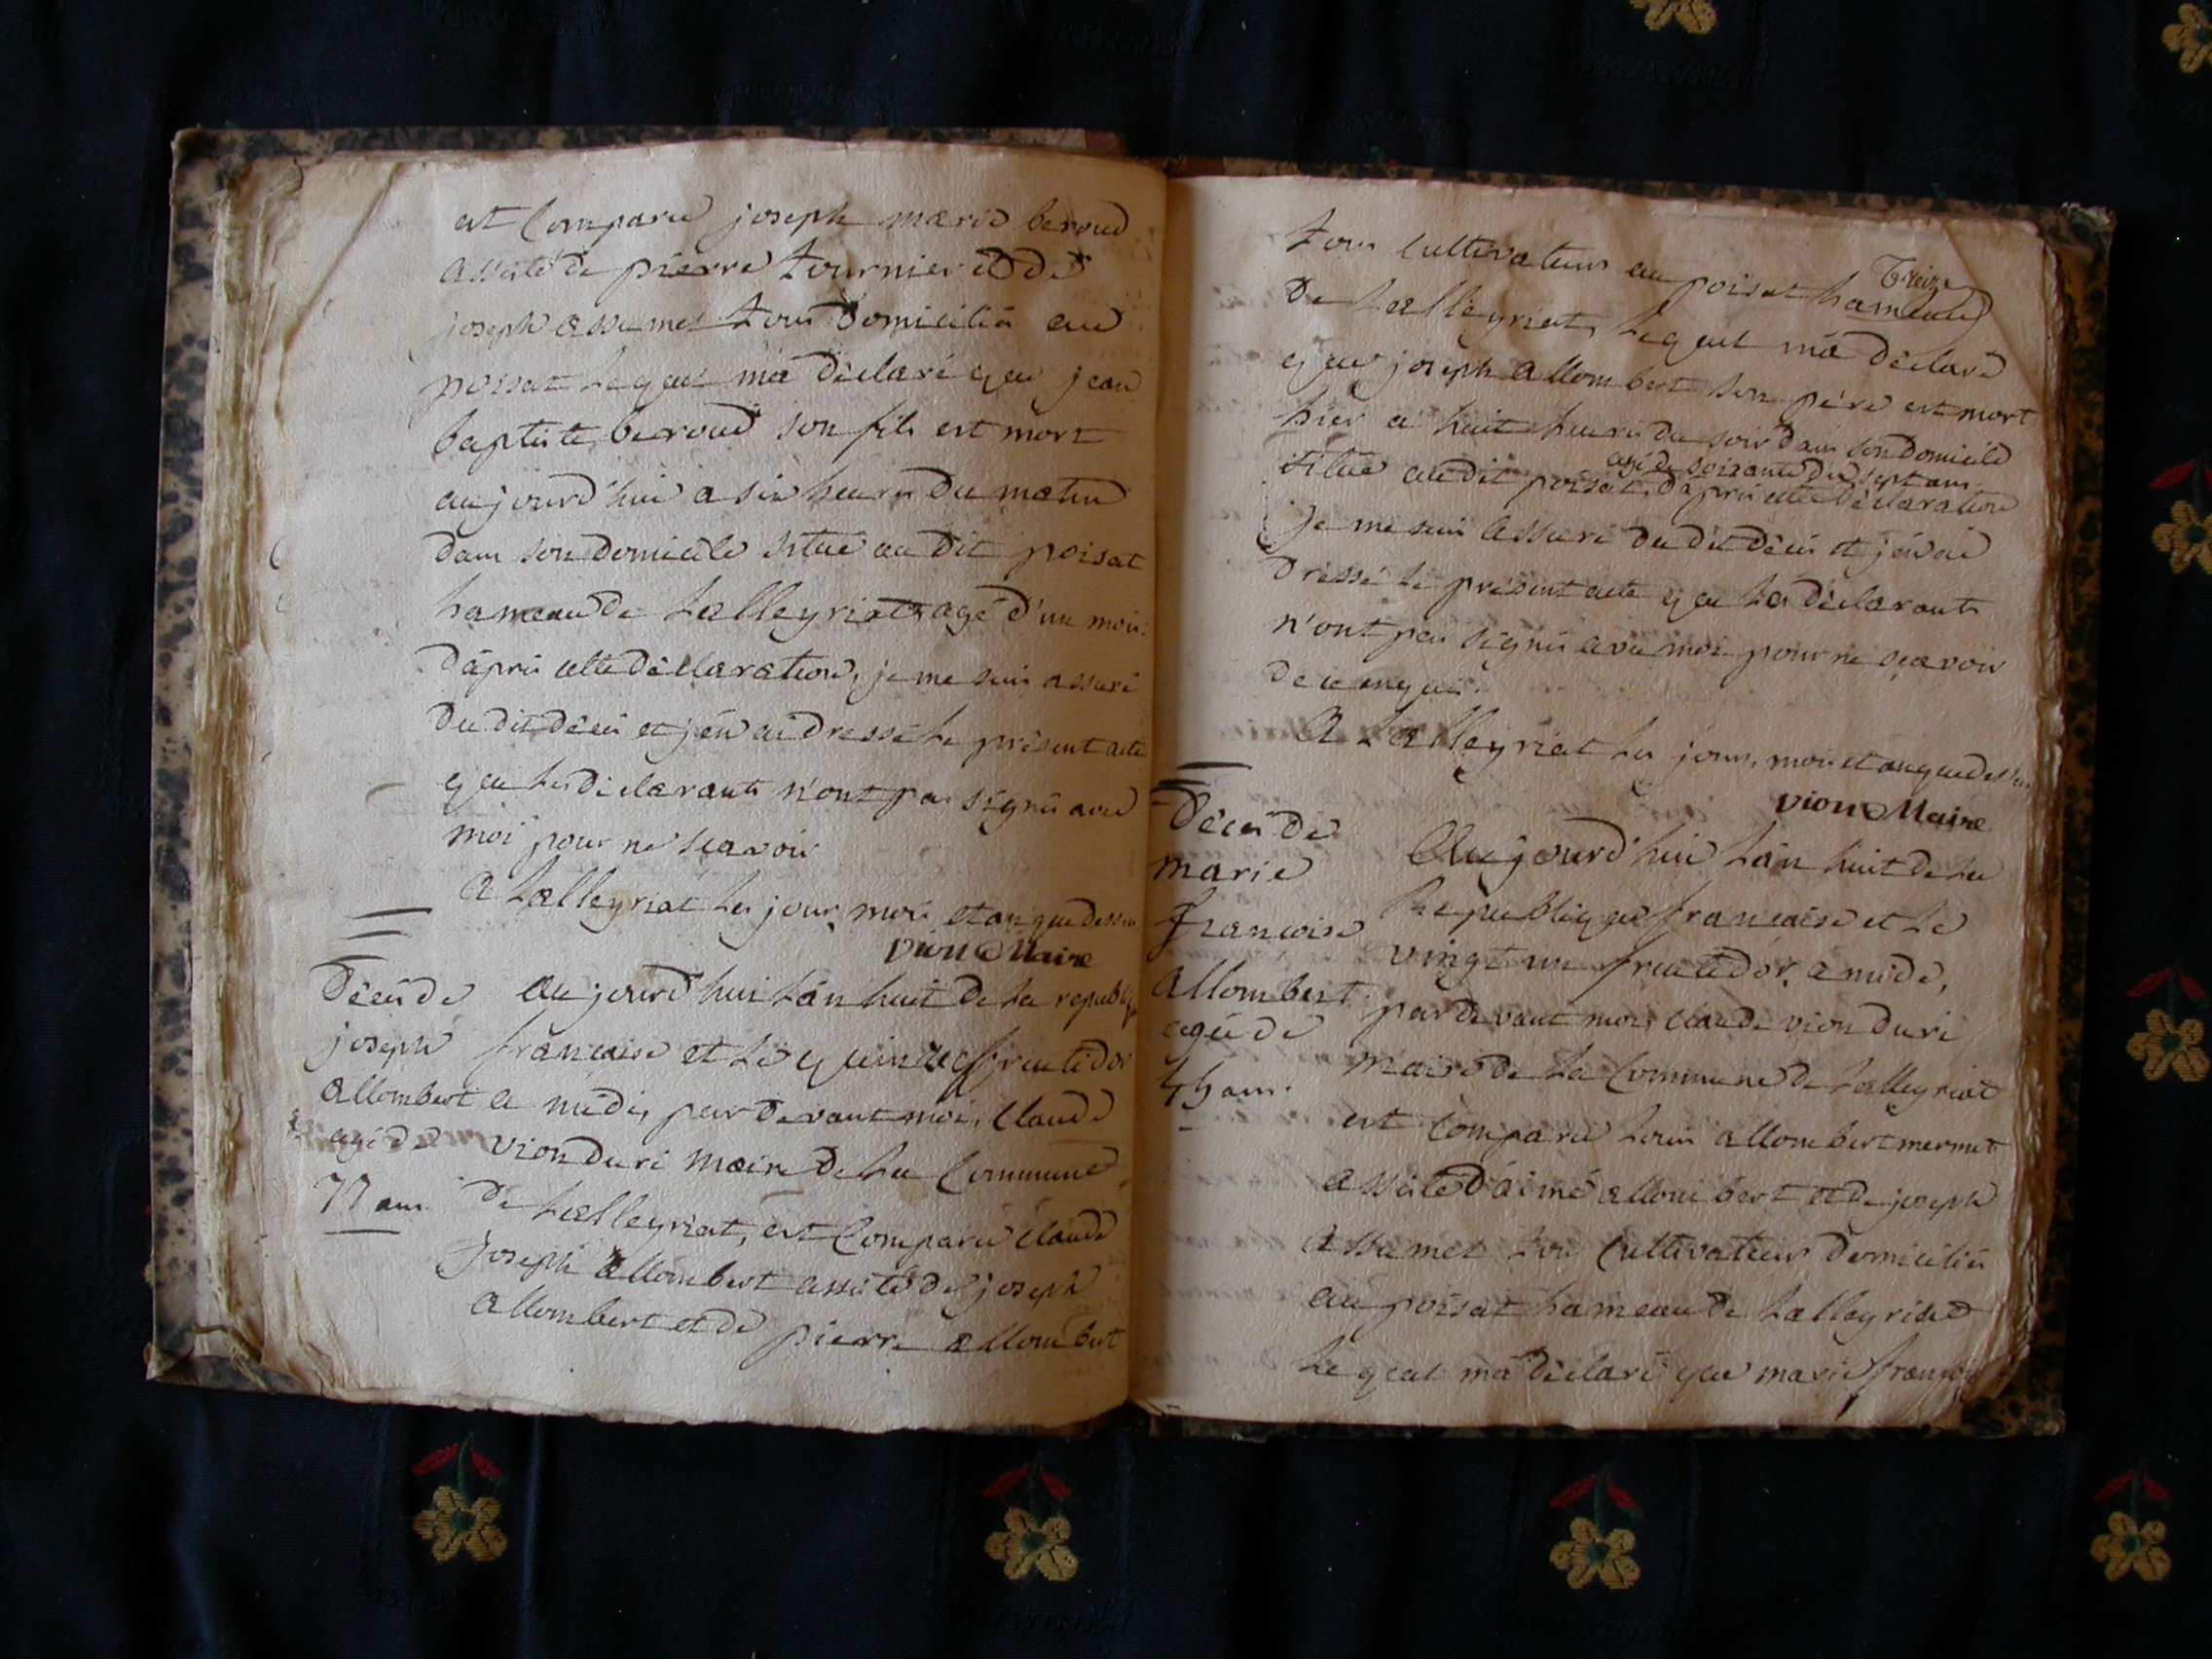 est Comparu joseph marie beroud
assisté de pierre tournier et de
joseph assumel tous domiciliés au
poisat lequel m'a déclaré que jean
baptiste beroud son fils est mort
aujourd'hui a six heures du matin
dans son domicile situé au dit poisat
hameau de Lalleyriat agé d'un mois.
d'après cette déclaration, je me suis assuré
du dit décès et j'en ai dressé le présent acte
que les déclarants n'ont pas signés avec
moi pour ne sçavoir
A Lalleyriat les jour, mois et an que dessus
vion Maire
décès de
joseph
allombert
agé de
77 ans.
Aujourd'hui L'an huit de la republique
francaise et le quinze fructidor
a midi, pardevant moi, Claude
vionduri maire de la Commune
de Lalleyriat, est Comparu claude
joseph allombert assisté de joseph
allombert et de pierre allombert
Treize
tous cultivateurs au poisat hameau
de Lalleyriat, lequel m'a déclaré
que joseph allombert son père est mort
hier a huit heures du soir dans son domicile
agé de soixante dix sept ans.
situé audit poisat, d'après cette déclaration
je me suis assuré du dit décès et j'en ai
dressé le présent acte que les déclarants
n'ont pas signés avec moi pour ne sçavoir
de ce enquis.
A Lalleyriat les jour, mois et an que dessus
vion Maire
décès de
marie
francoise
allombert
agée de
ans.
Aujourd'hui L'an huit de la
republique francaise et le
vingt un fructidor, a midi,
pardevant moi, claude vionduri
maire de la Commune de Lalleyriat
est Comparu Louis allombert mermet
assisté d'aimé allombert et de joseph
assumel tous cultivateurs domiciliés
au poisat hameau de Lalleyriat
lequel m'a déclaré que marie françoise